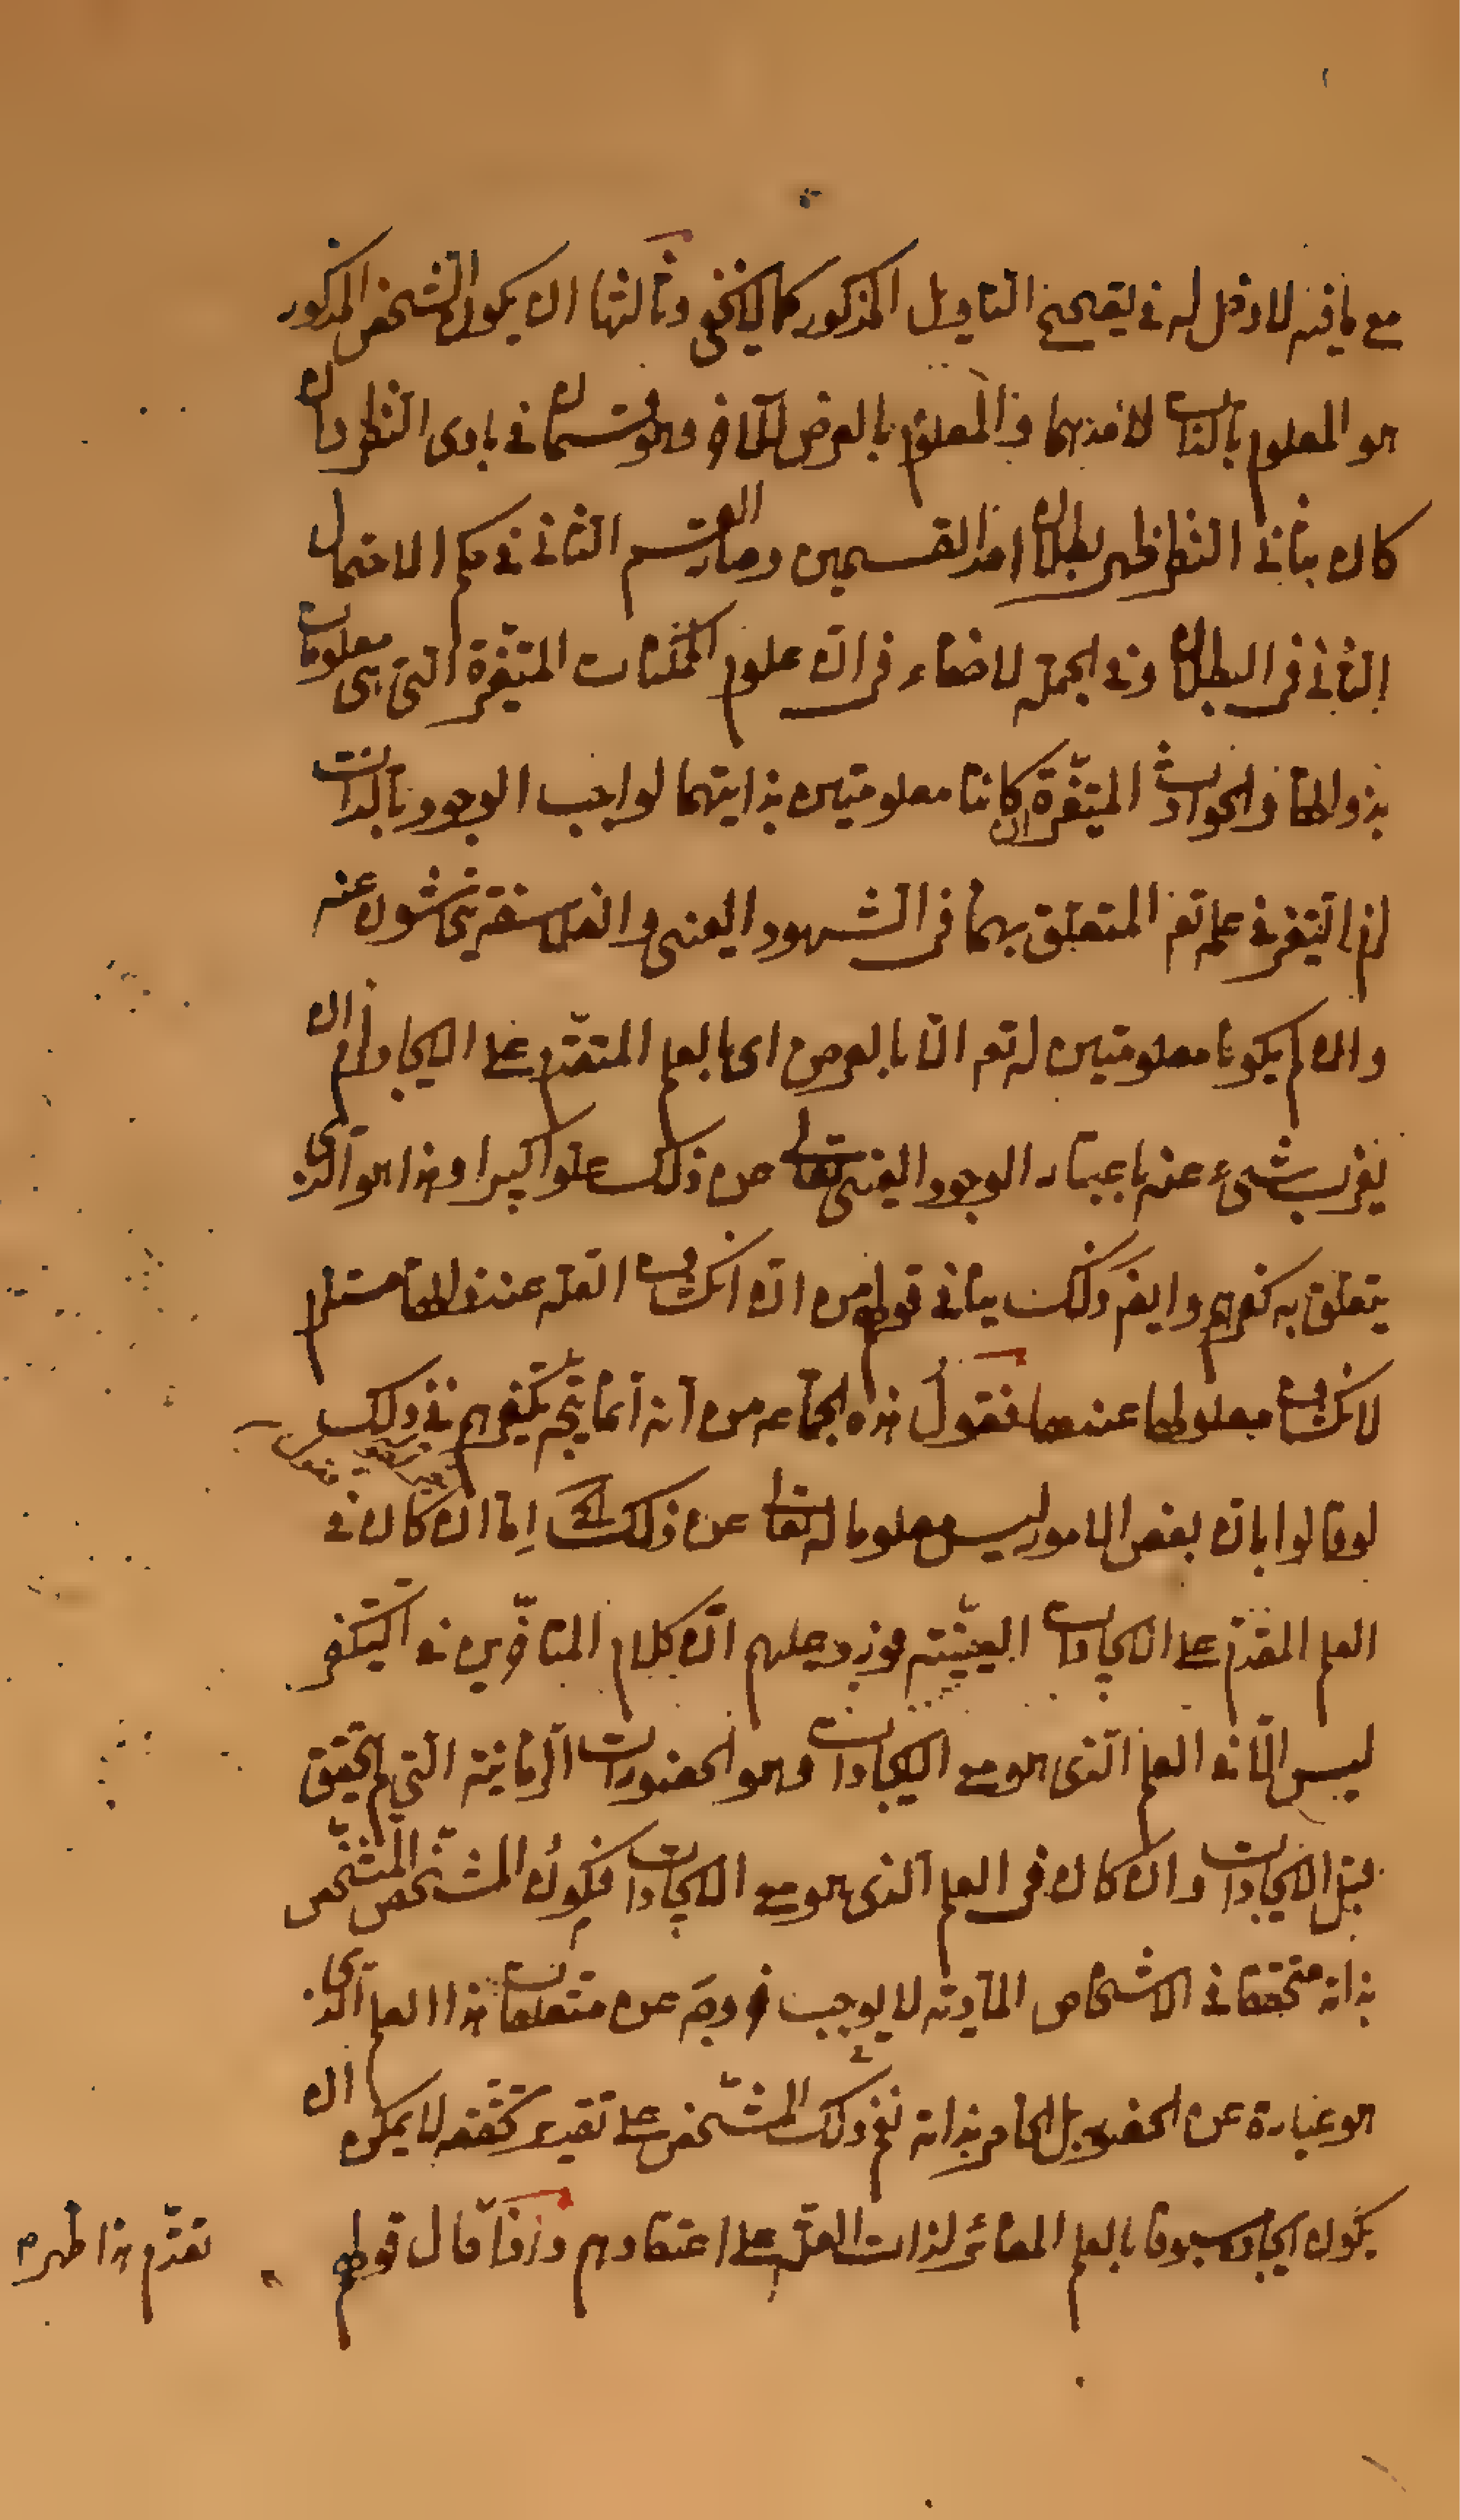 مع ما فيه لا دخل له في تصحيح التاويل المذكور كما لا يخفى وثالثها ان يكون الشخص المذكور
هو المعلوم بالذات لاحدهما والمعلوم بالعرض للآخر وهو قسمان في بادى النظر وان
كان بثاني النظر ظهر بطلان احد القسمين وصار القسم الثاني في حكم الاحتمال
الثاني في البطلان وفي الجملة لا خفاء في ان علوم الممكنات المتغيرة التي هي معلومات
بذواتها والحوادث المتغيرة ان كانتا معلومتين بذايتهما لواجب الوجود بالذات
لزم التغير في علمه تعم المتعلق بهما في الشهود العيني والفلاسفة يتحاشون عنه
وان لم يكونا معلومتين له تعم الا بالعرض اى بالعلم المتقدم على الايجاد لزم ان
يعزب شىء عنه باعتبار الوجود العيني تعالى عن ذلك علوا كبيرا وهذا هو الذى
يتعلق به كفرهم وايضا ذلك ينافي قولهم من ان انكشاف العلة عند ذاتها مستلزم
لانكشاف معلولها عندها فقول هذه الجماعة من انه انما يتجه تكفيرهم في ذلك
لو قالوا بان بعض الامور ليس معلوما له تعالى عن ذلك اما ان كان في
العلم المقدم على الايجادات العينية فيرد عليهم ان كلام المتاخرين في التكفير
ليس الا في العلم الذى هو مع الايجادات وهو الحضورات الزمانية التي لم يتحقق
قبل الايجادات وان كان في العلم الذى هو مع الايجادات فيكون المشخص المتشخص
بذاته متحققا في الاشخاص المادية لا يوجب خروجه عن متعلقات هذا العلم الذى
هو عبارة عن الحضور بل الحاضر بذاته نعم ذلك المشخص على تقدير تحققه لا يمكن ان
يكون ايجاده مسبوقا بالعلم المغائر لذات العلة على اعتقادهم واذا قال قولهم
تقدم هذا ظهر م